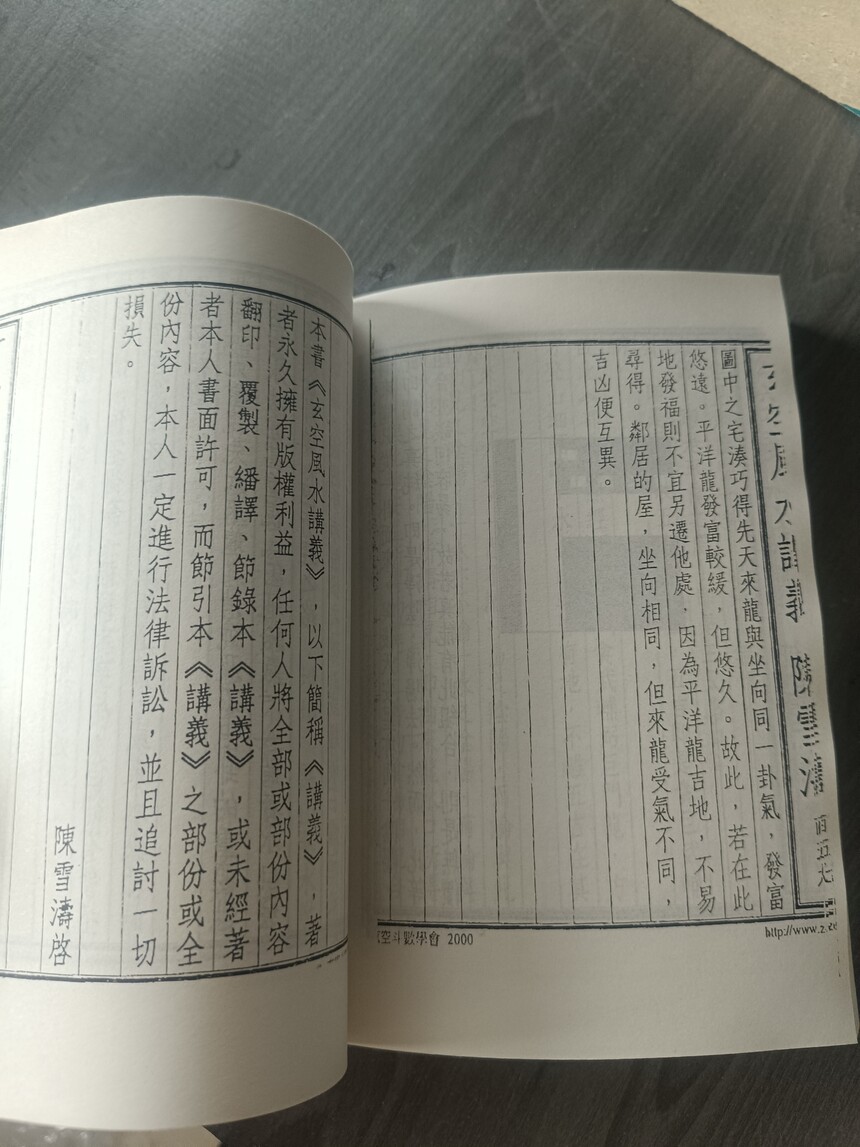 玄空風水講義 陳雪濤
圖中之宅湊巧得先天來龍與坐向同一卦氣，發富
悠遠。平洋龍發富較緩，但悠久。故此，若在此
地發福則不宜另遷他處，因為平洋龍吉地，不易
尋得。鄰居的屋，坐向相同，但來龍受氣不同，
吉凶便互異。
空斗數學會 2000
http://www.2
本書《玄空風水講義》，以下簡稱《講義》，著
者永久擁有版權利益，任何人將全部或部份內容
翻印、覆製、繙譯、節錄本《講義》，或未經著
者本人書面許可，而節引本《講義》之部份或全
份內容，本人一定進行法律訴訟，並且追討一切
損失。
陳雪濤啓